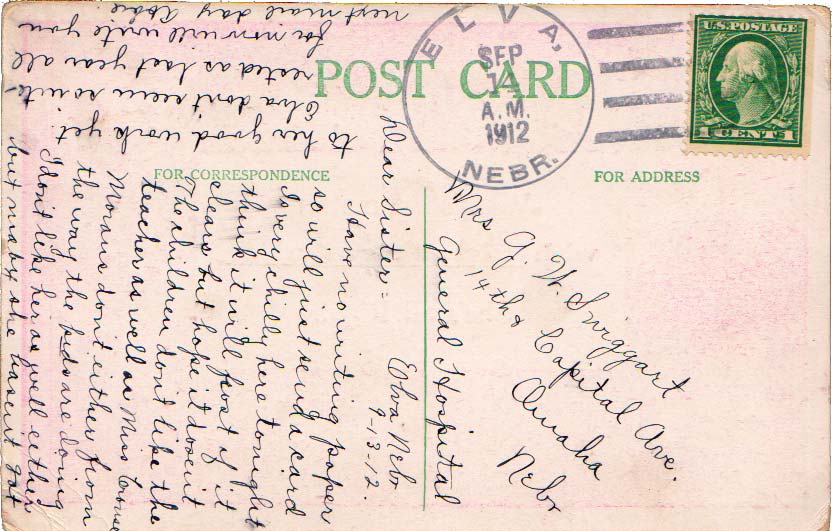 POST CARD
FOR CORRESPONDENCE
FOR ADDRESS
U.S. POSTAGE
1 CENT 1
ELVA,
SEP
14
A.M.
1912
NEBR.
Mrs G. W. Swiggart
14th & Capital Ave.
Omaha
Nebr
General Hospital
Elva Nebr
9-13-12.
Dear Sister:
Have no writing paper
so will just send a card
Is very chilly here tonight
think it will frost if it
clears but hope it doesent
The children dont like the
teacher as well as Miss
Morans dont either from
the way the kids are doing
I dont like her as well either
but mayby she hasent got
to her good work yet
Elva dont seem so inte-
rested as last year all
for now will write you
next mail day